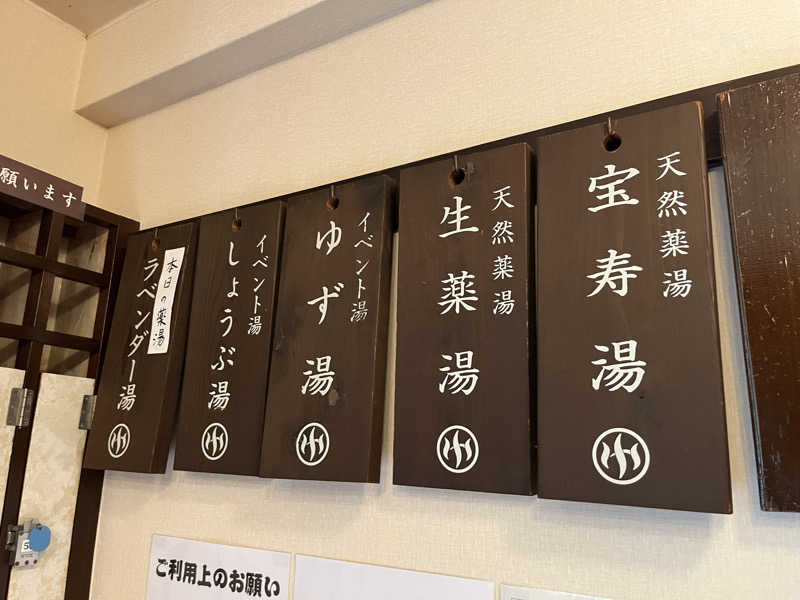 天然薬湯
宝寿湯
天然薬湯
生薬湯
イベント湯
ゆず湯
イベント湯
しょうぶ湯
本日の薬湯
ラベンダー湯
願います
ご利用上のお願い